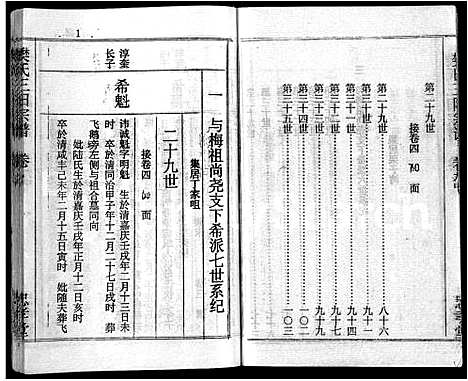 第二十九世
接卷四 面
第二十九世 八十六
第三十世 九十一
第三十一世 九十四
第三十二世 九十七
第三十三世 九十九
第三十四世 一〇二
第三十五世 一〇三
1
一 与梅祖尚尧支下希派七世系纪
集居丁家咀
二十九世
接卷四 面
淳奎
长子
希魁
讳诚魁字明魁 生於清嘉庆壬戌年二月十三日寅
时 卒於清同治甲子年十二月二十七日戌时 葬
飞鹅塝左侧与祖合墓同向
妣陆氏 生於清嘉庆壬戌年正月十二日亥时
卒於清咸丰己未年二月十五日寅时 妣随夫葬飞
樊氏三阳宗谱 卷